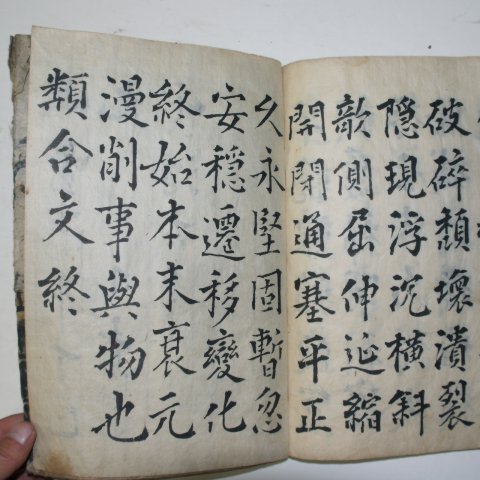 破碎頹壞潰裂
隐現浮沉橫斜
欹側屈伸延縮
開閉通塞平正
久永堅固暫忽
安穩遷移變化
終始本末衰元
漫削事與物也
類合文終